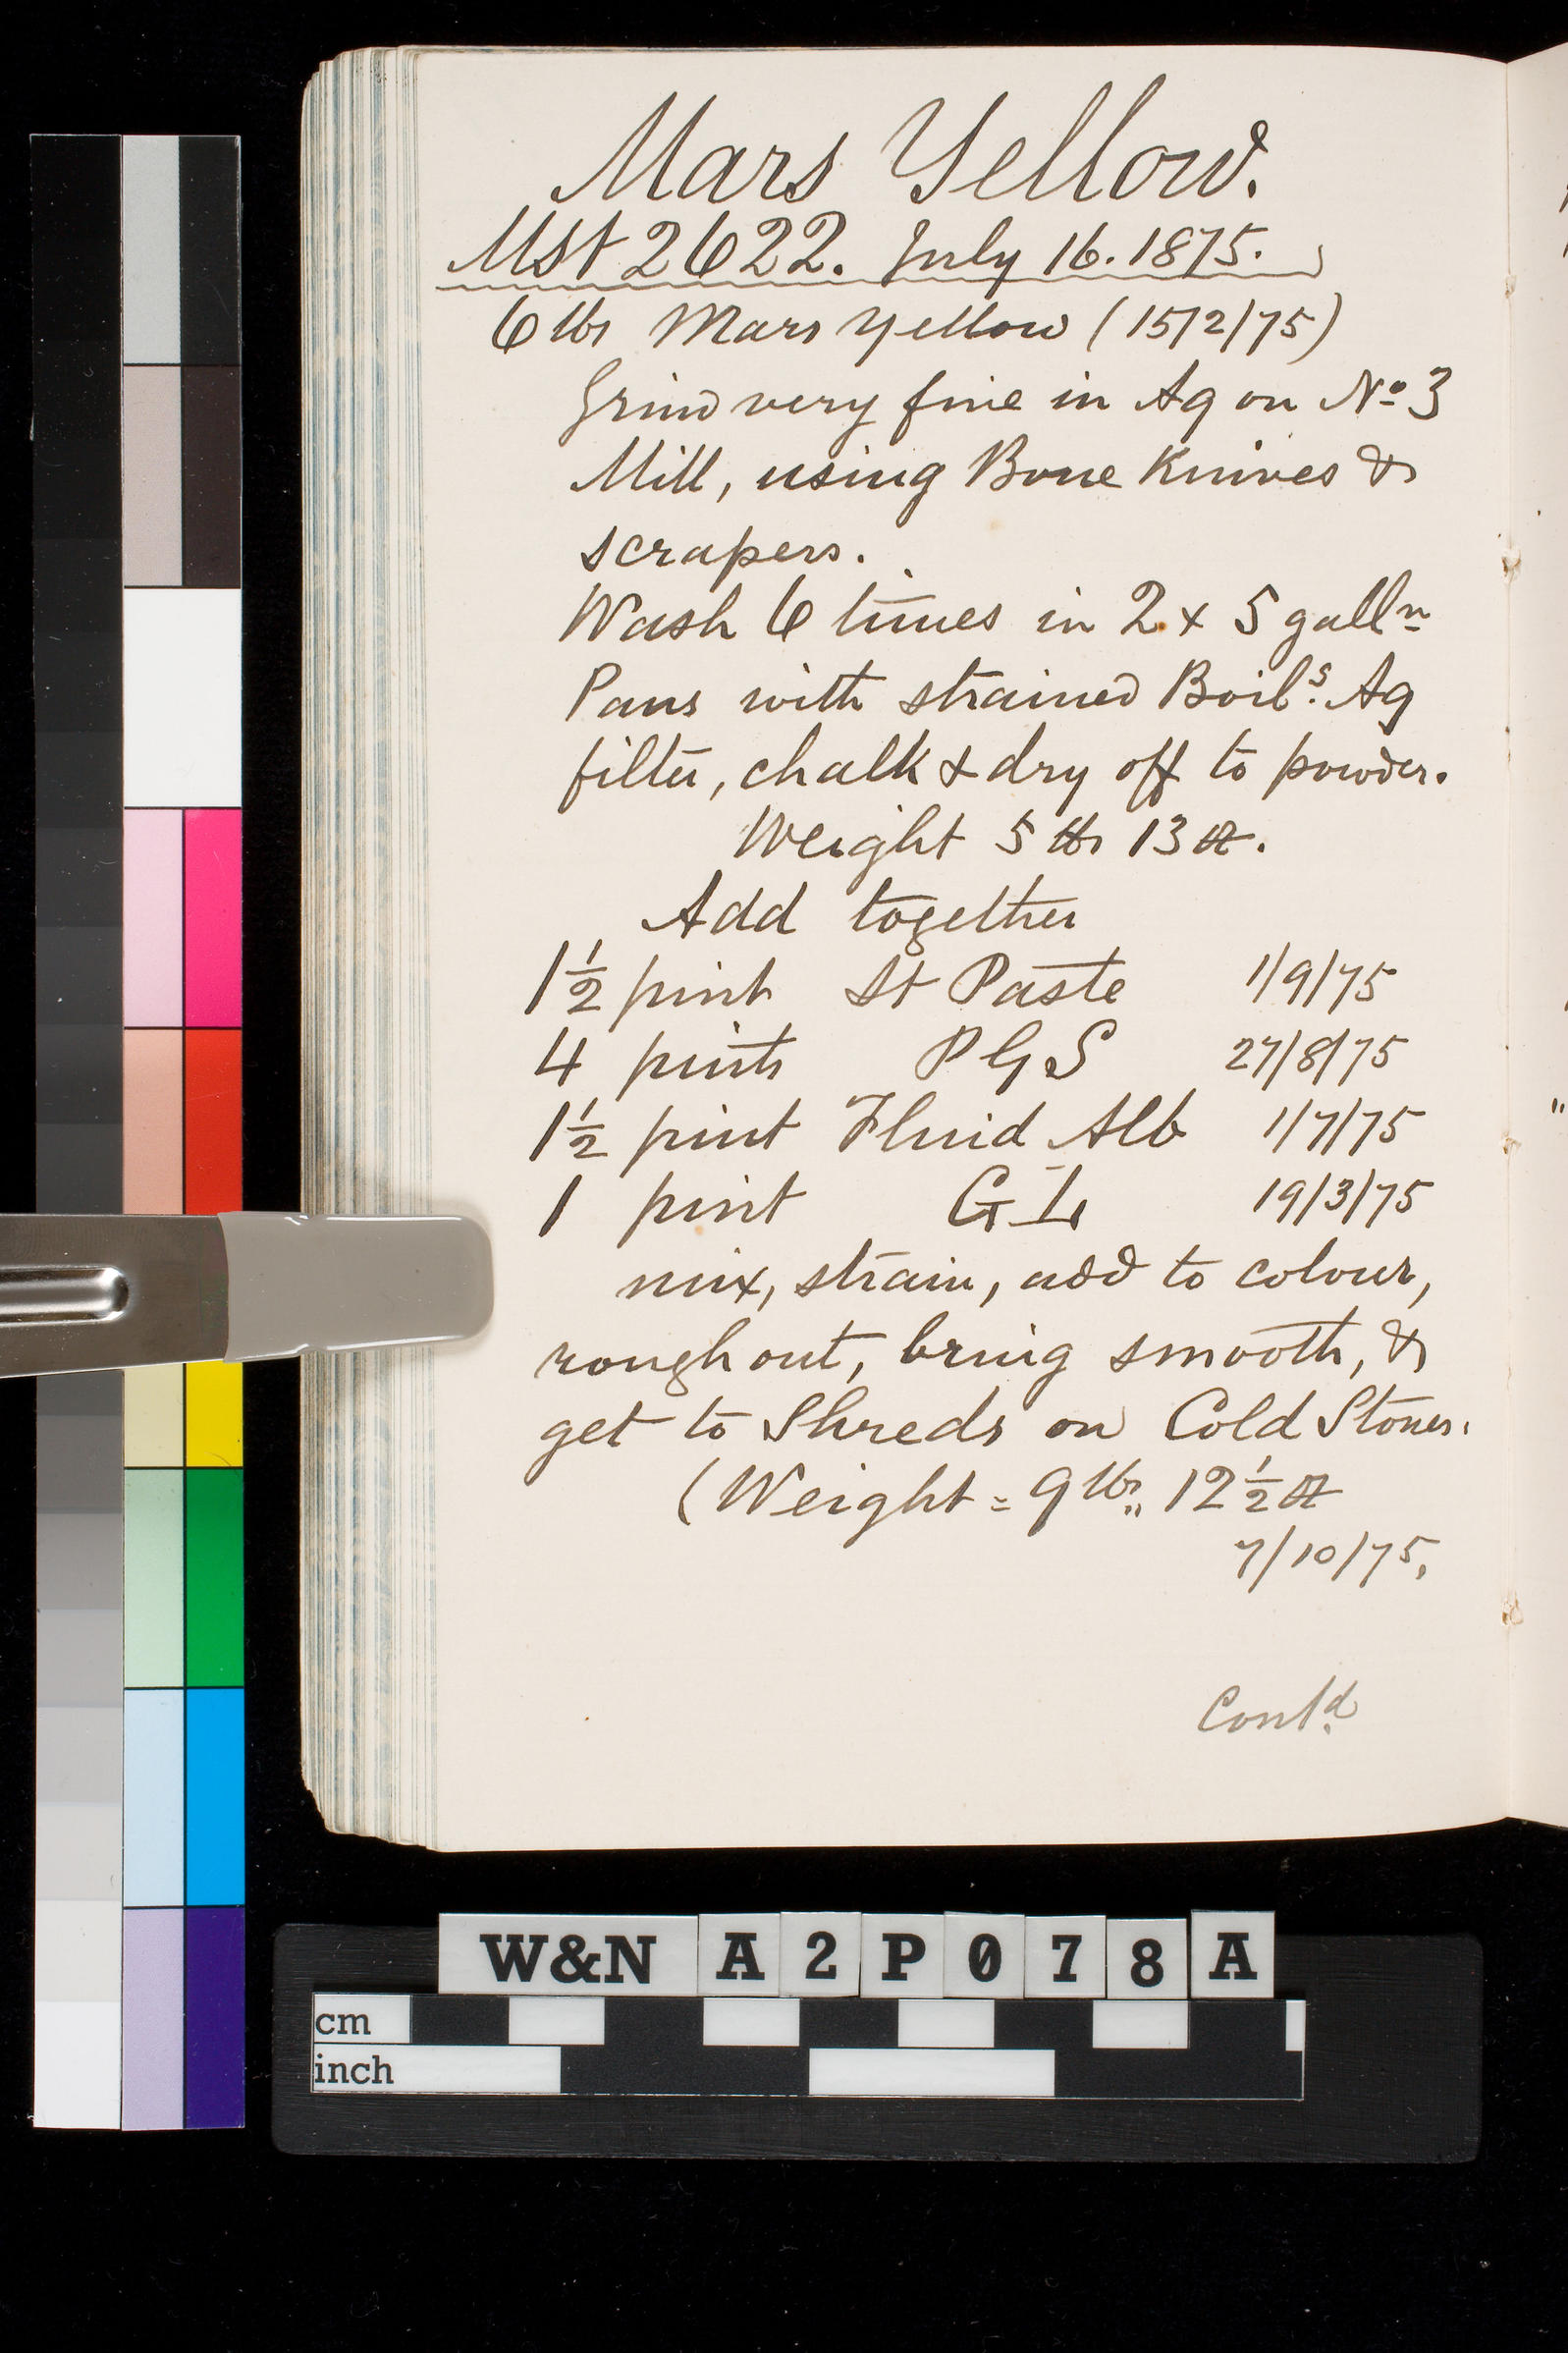 Mars Yellow.
Mst 2622. July 16. 1875.
6 lbs Mars Yellow (15/2/75)
Grind very fine in Aq on No 3
Mill, using Bone Knives &
scrapers.
Wash 6 times in 2 x 5 galln
Pans with strained Boils. Aq
filter, chalk & dry off to powder.
Weight 5 lbs 13 oz.
Add together
1½ pint St Paste 1/9/75
4 pints P G S 27/8/75
1½ pint Fluid Alb 1/7/75
1 pint G L 19/3/75
mix, strain, add to colour,
rough out, bring smooth, &
get to Shreds on Cold Stones.
(Weight = 9 lbs,, 12½ oz
7/10/75.
Contd
W&N A2P078A
cm
inch